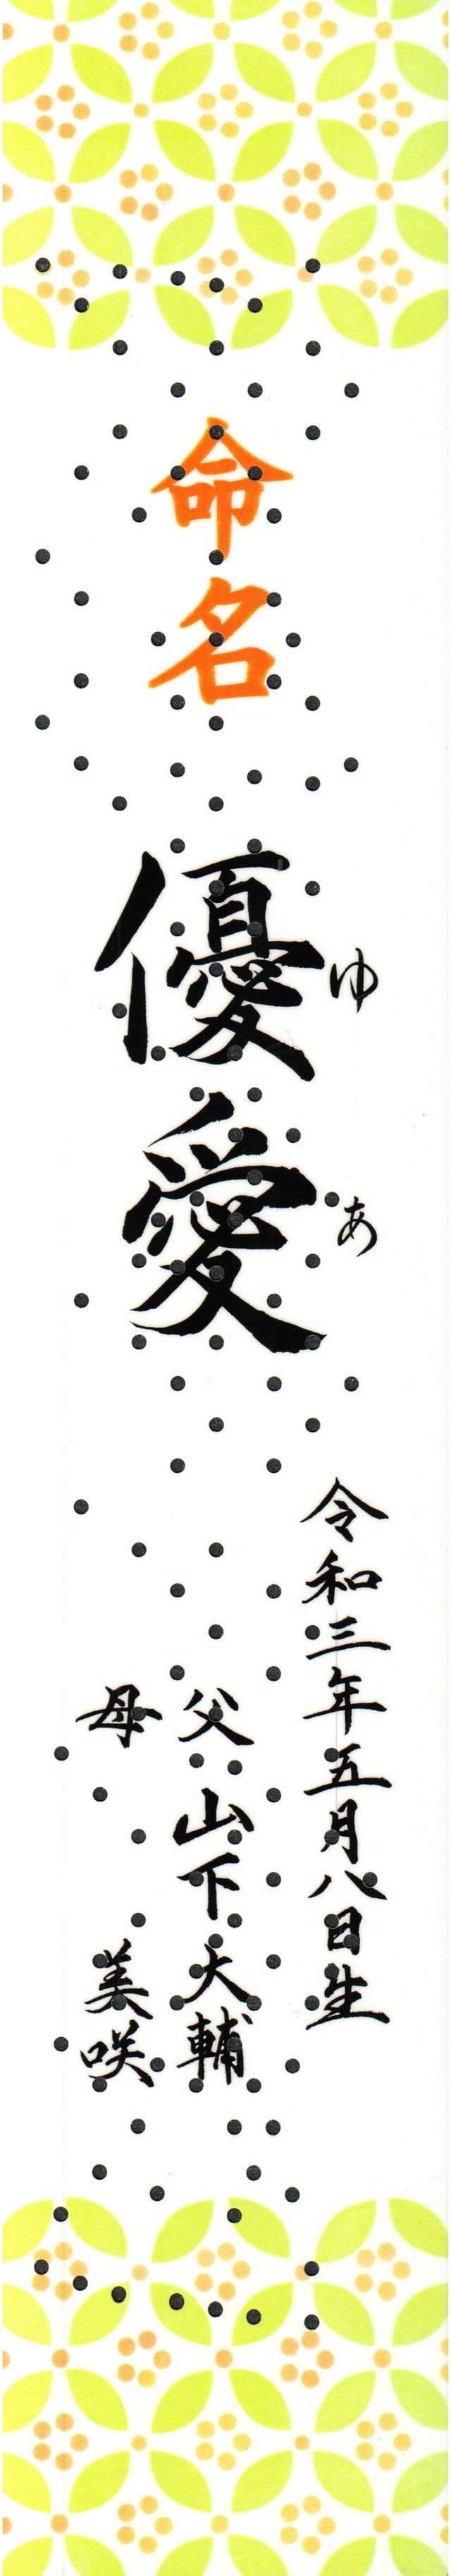 命名
優愛
ゆあ
令和三年五月八日生
父 山下大輔
母 美咲